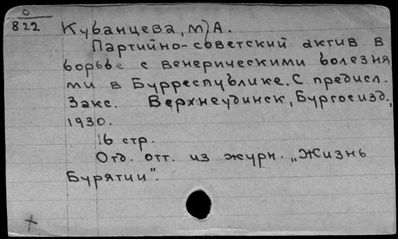 О
822
Кубанцева, М. А.
Партийно-советский актив в
борьбе с венерическими болезня
ми в Бурреспублике. С предисл.
Закс. Верхнеудинск, Бургосизд.,
1930.
16 стр.
Отд. отт. из журн. „Жизнь
Бурятии".